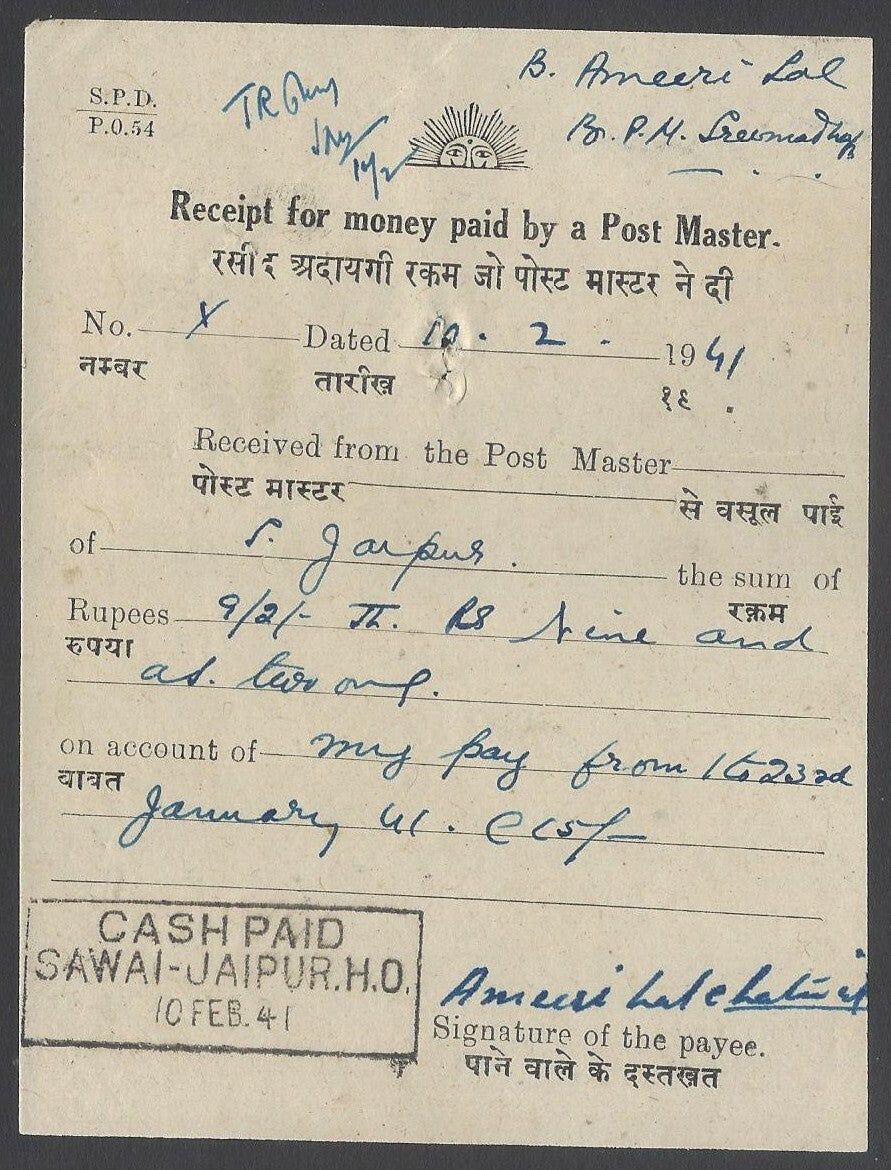 B. Ameeri Lal
S.P.D.
P.O.54
Br. P. M. Sreemadhop
Receipt for money paid by a Post Master.
रसीद अदायगी रकम जो पोस्ट मास्टर ने दी
No. X Dated 10. 2. 1941
नम्बर तारीख़ १९ .
Received from the Post Master
पोस्ट मास्टर से वसूल पाई
of S. Jaipur. the sum of
रक़म
Rupees 9/2/- Rs Nine and
रुपया
as. two only.
on account of my pay from 1 to 23rd
बाबत
January 41. @ 15/-
CASH PAID
SAWAI-JAIPUR.H.O.
10 FEB. 41
Ameeri Lal
Signature of the payee.
पाने वाले के दस्तख़त